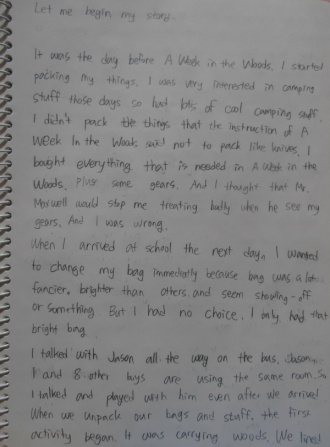 Let me begin my story.
It was the day before A Week in the Woods. I started
packing my things. I was very interested in camping
stuff those days so had lots of cool camping stuff.
I didn't pack the things that the instruction of A
Week In the Woods said not to pack like knives. I
bought everything that is needed in A Week in the
Woods, Plus some gears. And I thought that Mr.
Maxwell would stop me treating badly when he see my
gears. And I was wrong.
When I arrived at school the next day, I wanted
to change my bag immediatly because bag was a lot
fancier, brighter than others and seem showing-off
or something. But I had no choice. I only had that
bright bag.
I talked with Jason all the way on the bus. Jason,
I and 8 other boys are using the same room. So
I talked and played with him even after we arrive
When we unpack our bags and stuff, the first
activity began. It was carrying woods. We lined